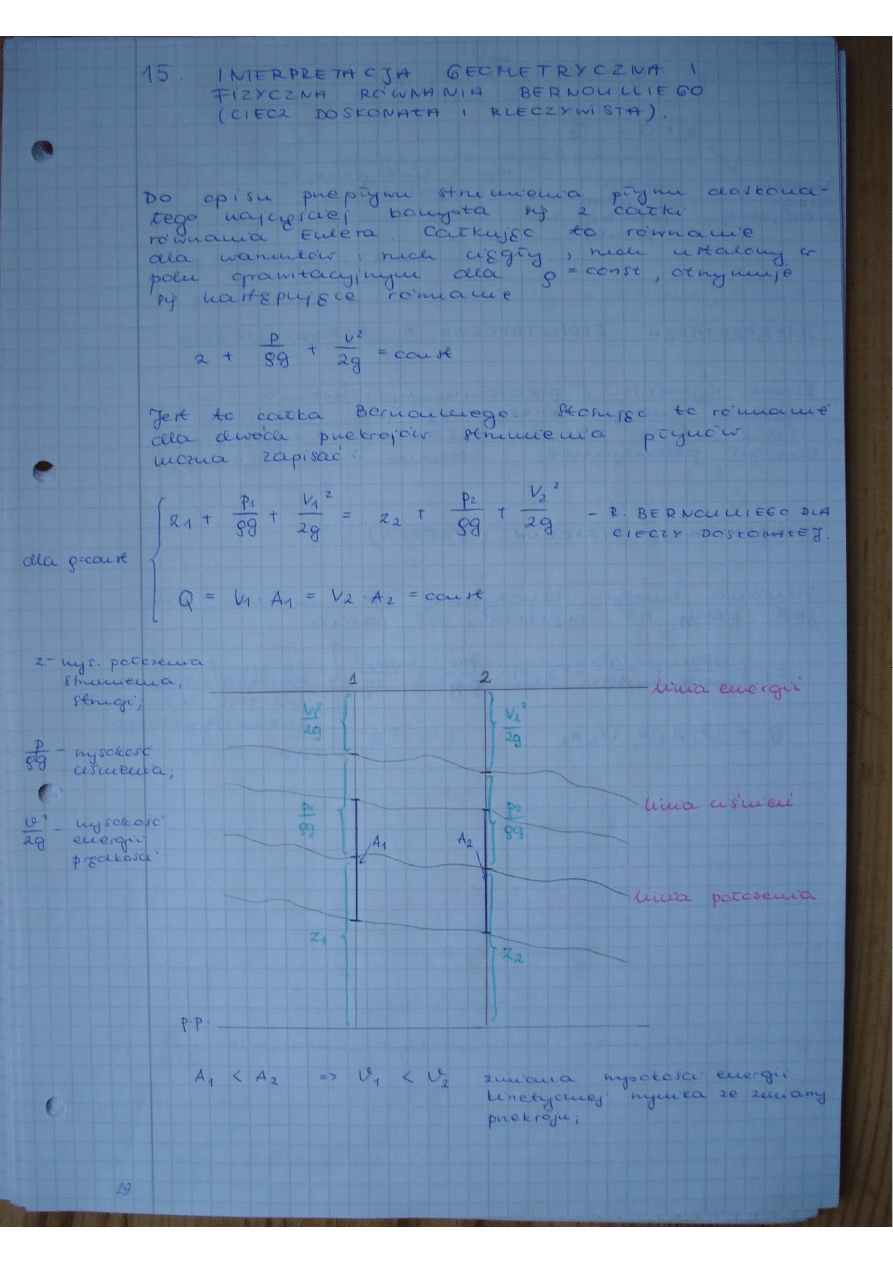 15. INTERPRETACJA GEOMETRYCZNA I
FIZYCZNA RÓWNANIA BERNOULLIEGO
(CIECZ DOSKONAŁA I RZECZYWISTA).
Do opisu przepływu strumienia płynu doskona-
łego najczęściej korzysta się z całki
równania Eulera. Całkując to równanie
dla warunków: ruch ciągły, ruch ustalony w
polu grawitacyjnym dla ρ = const, otrzymuje
się następujące równanie
z + p/ρg + v²/2g = const
Jest to całka Bernoulliego. Stosując to równanie
dla dwóch przekrojów strumienia płynów
można zapisać:
z1 + p1/ρg + V1²/2g = z2 + p2/ρg + V2²/2g - R. BERNOULLIEGO DLA
CIECZY DOSKONAŁEJ.
dla ρ=const
Q = V1 · A1 = V2 · A2 = const
z - wys. położenia
strumienia,
strugi;
p/ρg - wysokość
ciśnienia;
v²/2g - wysokość
energii
prędkości
1 2
linia energii
V1²/2g V2²/2g
linia ciśnień
p1/ρg p2/ρg
A1 A2
linia położenia
z1 z2
p.p.
A1 < A2 => V1 < V2 zmiana wysokości energii
kinetycznej wynika ze zmiany
przekroju;
29